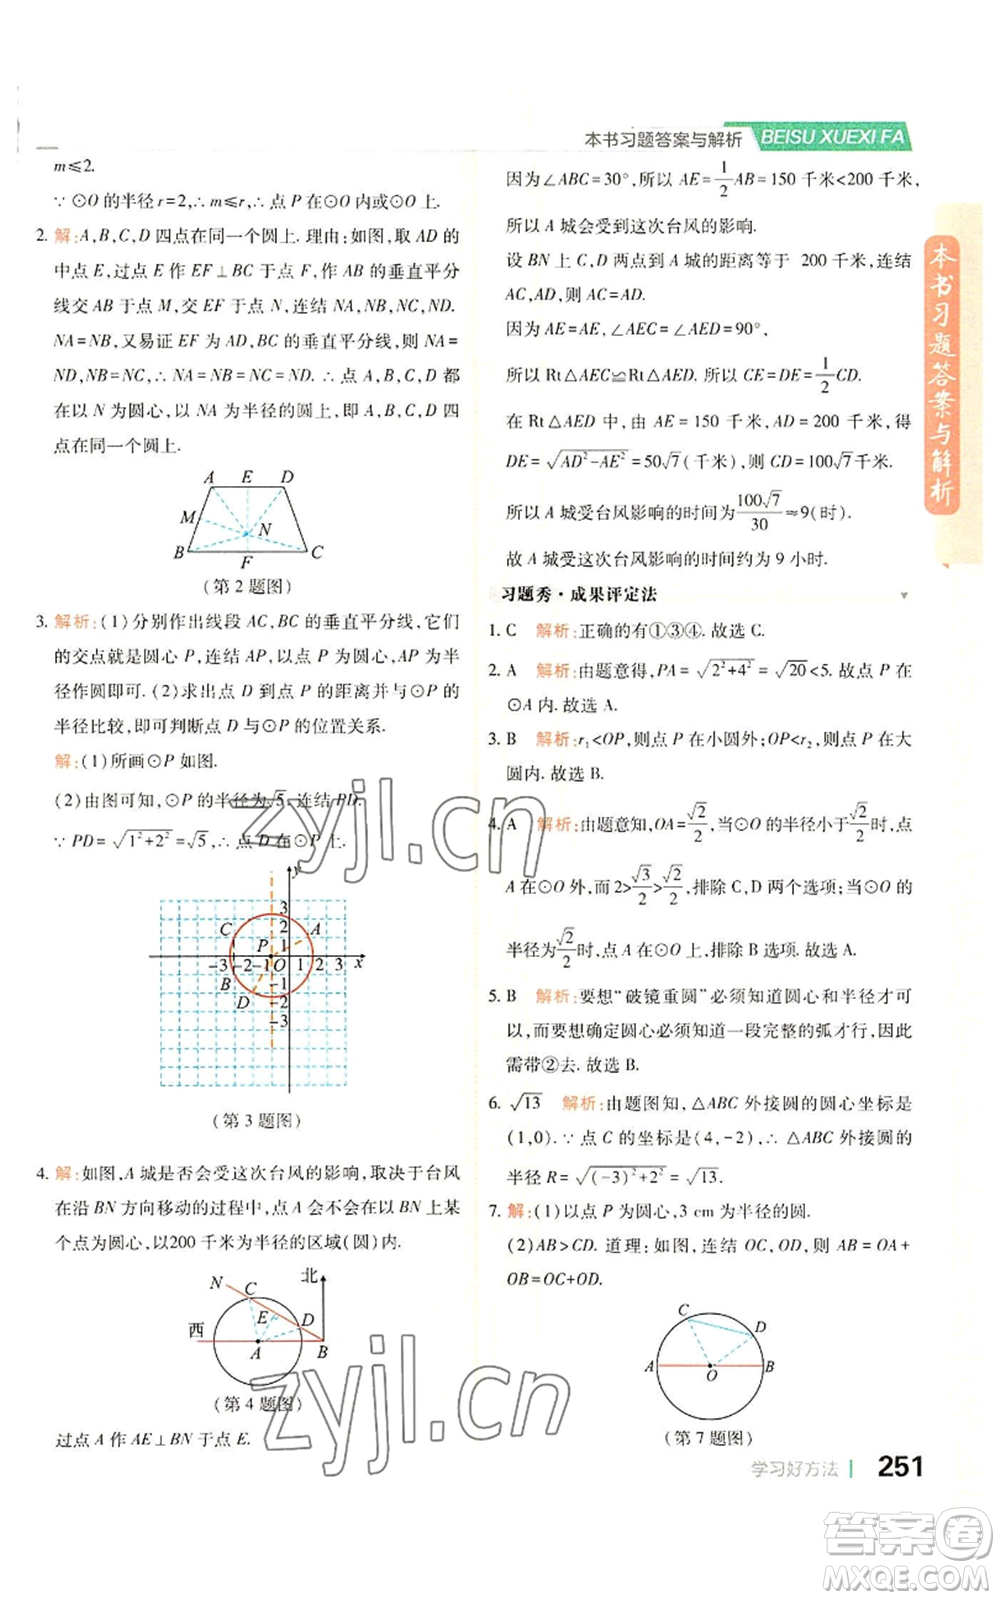 本书习题答案与解析 BEISU XUEXI FA
m≤2.
∵⊙O的半径r=2,∴m≤r,∴点P在⊙O内或⊙O上.
2. 解:A,B,C,D四点在同一个圆上. 理由:如图,取AD的
中点E,过点E作EF⊥BC于点F,作AB的垂直平分
线交AB于点M,交EF于点N,连结NA,NB,ND.
NA=NB,又易证EF为AD,BC的垂直平分线,则
NA=ND,NB=NC,∴NA=NB=NC=ND.∴点ABCD都
在以N为圆心,以NA为半径的圆上,即A,B,C,D四
点在同一个圆上.
A E D
M
N
B F C
(第2题图)
3. 解析:(1)分别作出线段AC,BC的垂直平分线,它们
的交点就是圆心P,连结AP,以点P为圆心,AP为半
径作圆即可. (2)求出点D到点P的距离并与⊙P的
半径比较,即可判断点D与⊙P的位置关系.
解:(1)所画⊙P如图.
(2)由图可知,⊙P的半径为√5,连结PD.
∵PD=√(1²+2²)=√5,∴点D在⊙P上.
y
3
2
C A
P 1
-3 -2 -1 O 1 2 3 x
B -1
D -2
-3
(第3题图)
4. 解:如图,A城是否会受这次台风的影响,取决于台风
在沿BN方向移动的过程中,点A是否会落在以某
个点为圆心,以200千米为半径的区域(圆)内.
北
N C
E
D
西
A B
(第4题图)
过点A作AE⊥BN于点E.
因为∠ABC=30°,所以AE=1/2AB=150千米<200千米,
所以A城会受到这次台风的影响.
设BN上C,D两点到A城的距离等于 200千米,连结
AC,AD,则AC=AD=200千米.
因为AE=AE,∠AEC=∠AED=90°,
所以Rt△AEC≌Rt△AED,所以CE=DE=1/2CD.
在Rt△AED中,由AE=150千米,AD=200千米,得
DE=√(AD²-AE²)=50√7(千米),所以CD=100√7千米.
所以A城受台风影响的时间为100√7/30≈9(时).
故A城受这次台风影响的时间约为9小时.
习题秀·成果评定法
1. C 解析:正确的有①③④.故选C.
2. A 解析:由题意得,PA=√(2²+4²)=√20<5.故点P在
⊙A内.故选A.
3. B 解析:r₁<OP,则点P在小圆外;OP<r₂,则点P在大
圆内.故选B.
4. A 解析:由题意知,OA=√2/2,当⊙O的半径小于√2/2时,点
A在⊙O外,而2>√3/2>√2/2,排除C,D两个选项;当⊙O的
半径为√2/2时,点A在⊙O上,排除B选项.故选A.
5. B 解析:要想“破镜重圆”必须知道圆心和半径才可
以,而要想确定圆心必须知道一段完整的弧才行,因此
需带②去.故选B.
6. √13 解析:由题图知,△ABC外接圆的圆心坐标是
(1,0).∵点C的坐标是(4,-2),∴△ABC外接圆的
半径R=√((-3)²+2²)=√13.
7. 解:(1)以点P为圆心,3 cm为半径的圆.
(2)AB>CD. 道理:如图,连结OC,OD,则AB=OA+
OB=OC+OD.
C
D
A O B
(第7题图)
本书习题答案与解析
学习好方法 251
zyjl.cn
zyjl.cn
答案卷
MXQE.COM